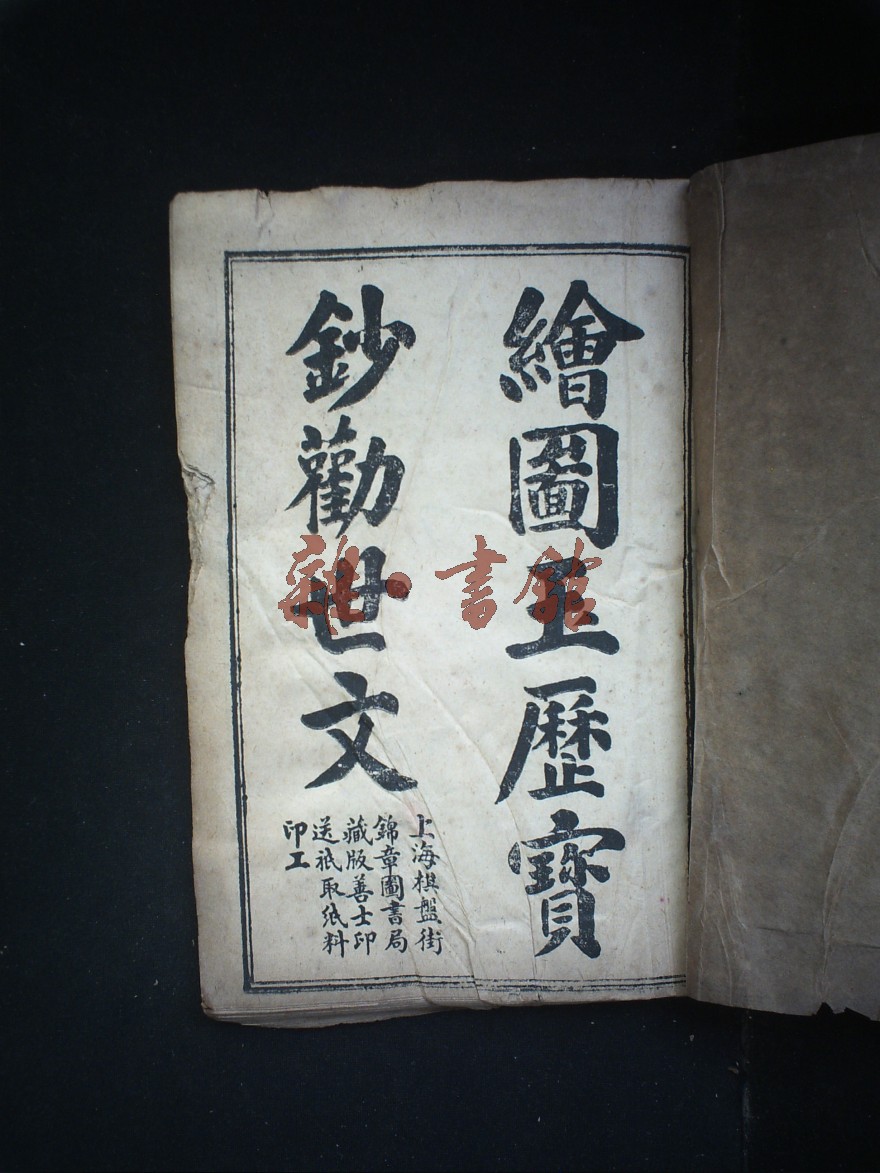 繪圖玉歷寳
鈔勸世文
上海棋盤街
錦章圖書局
藏版善士印
送祇取紙料
印工
雜·書館